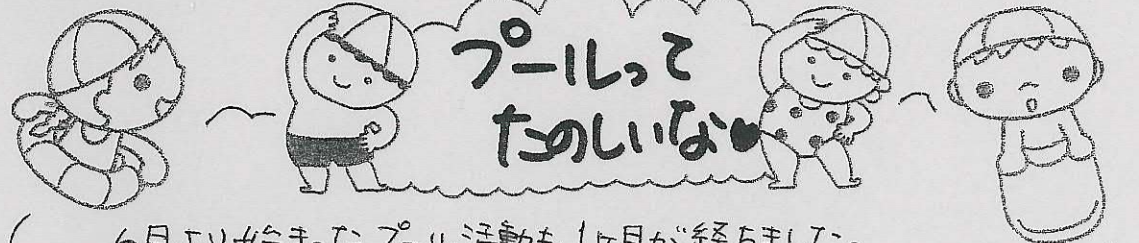 プールって
たのしいな♥
6月より始まったプール活動も、1ヶ月が経ちました。